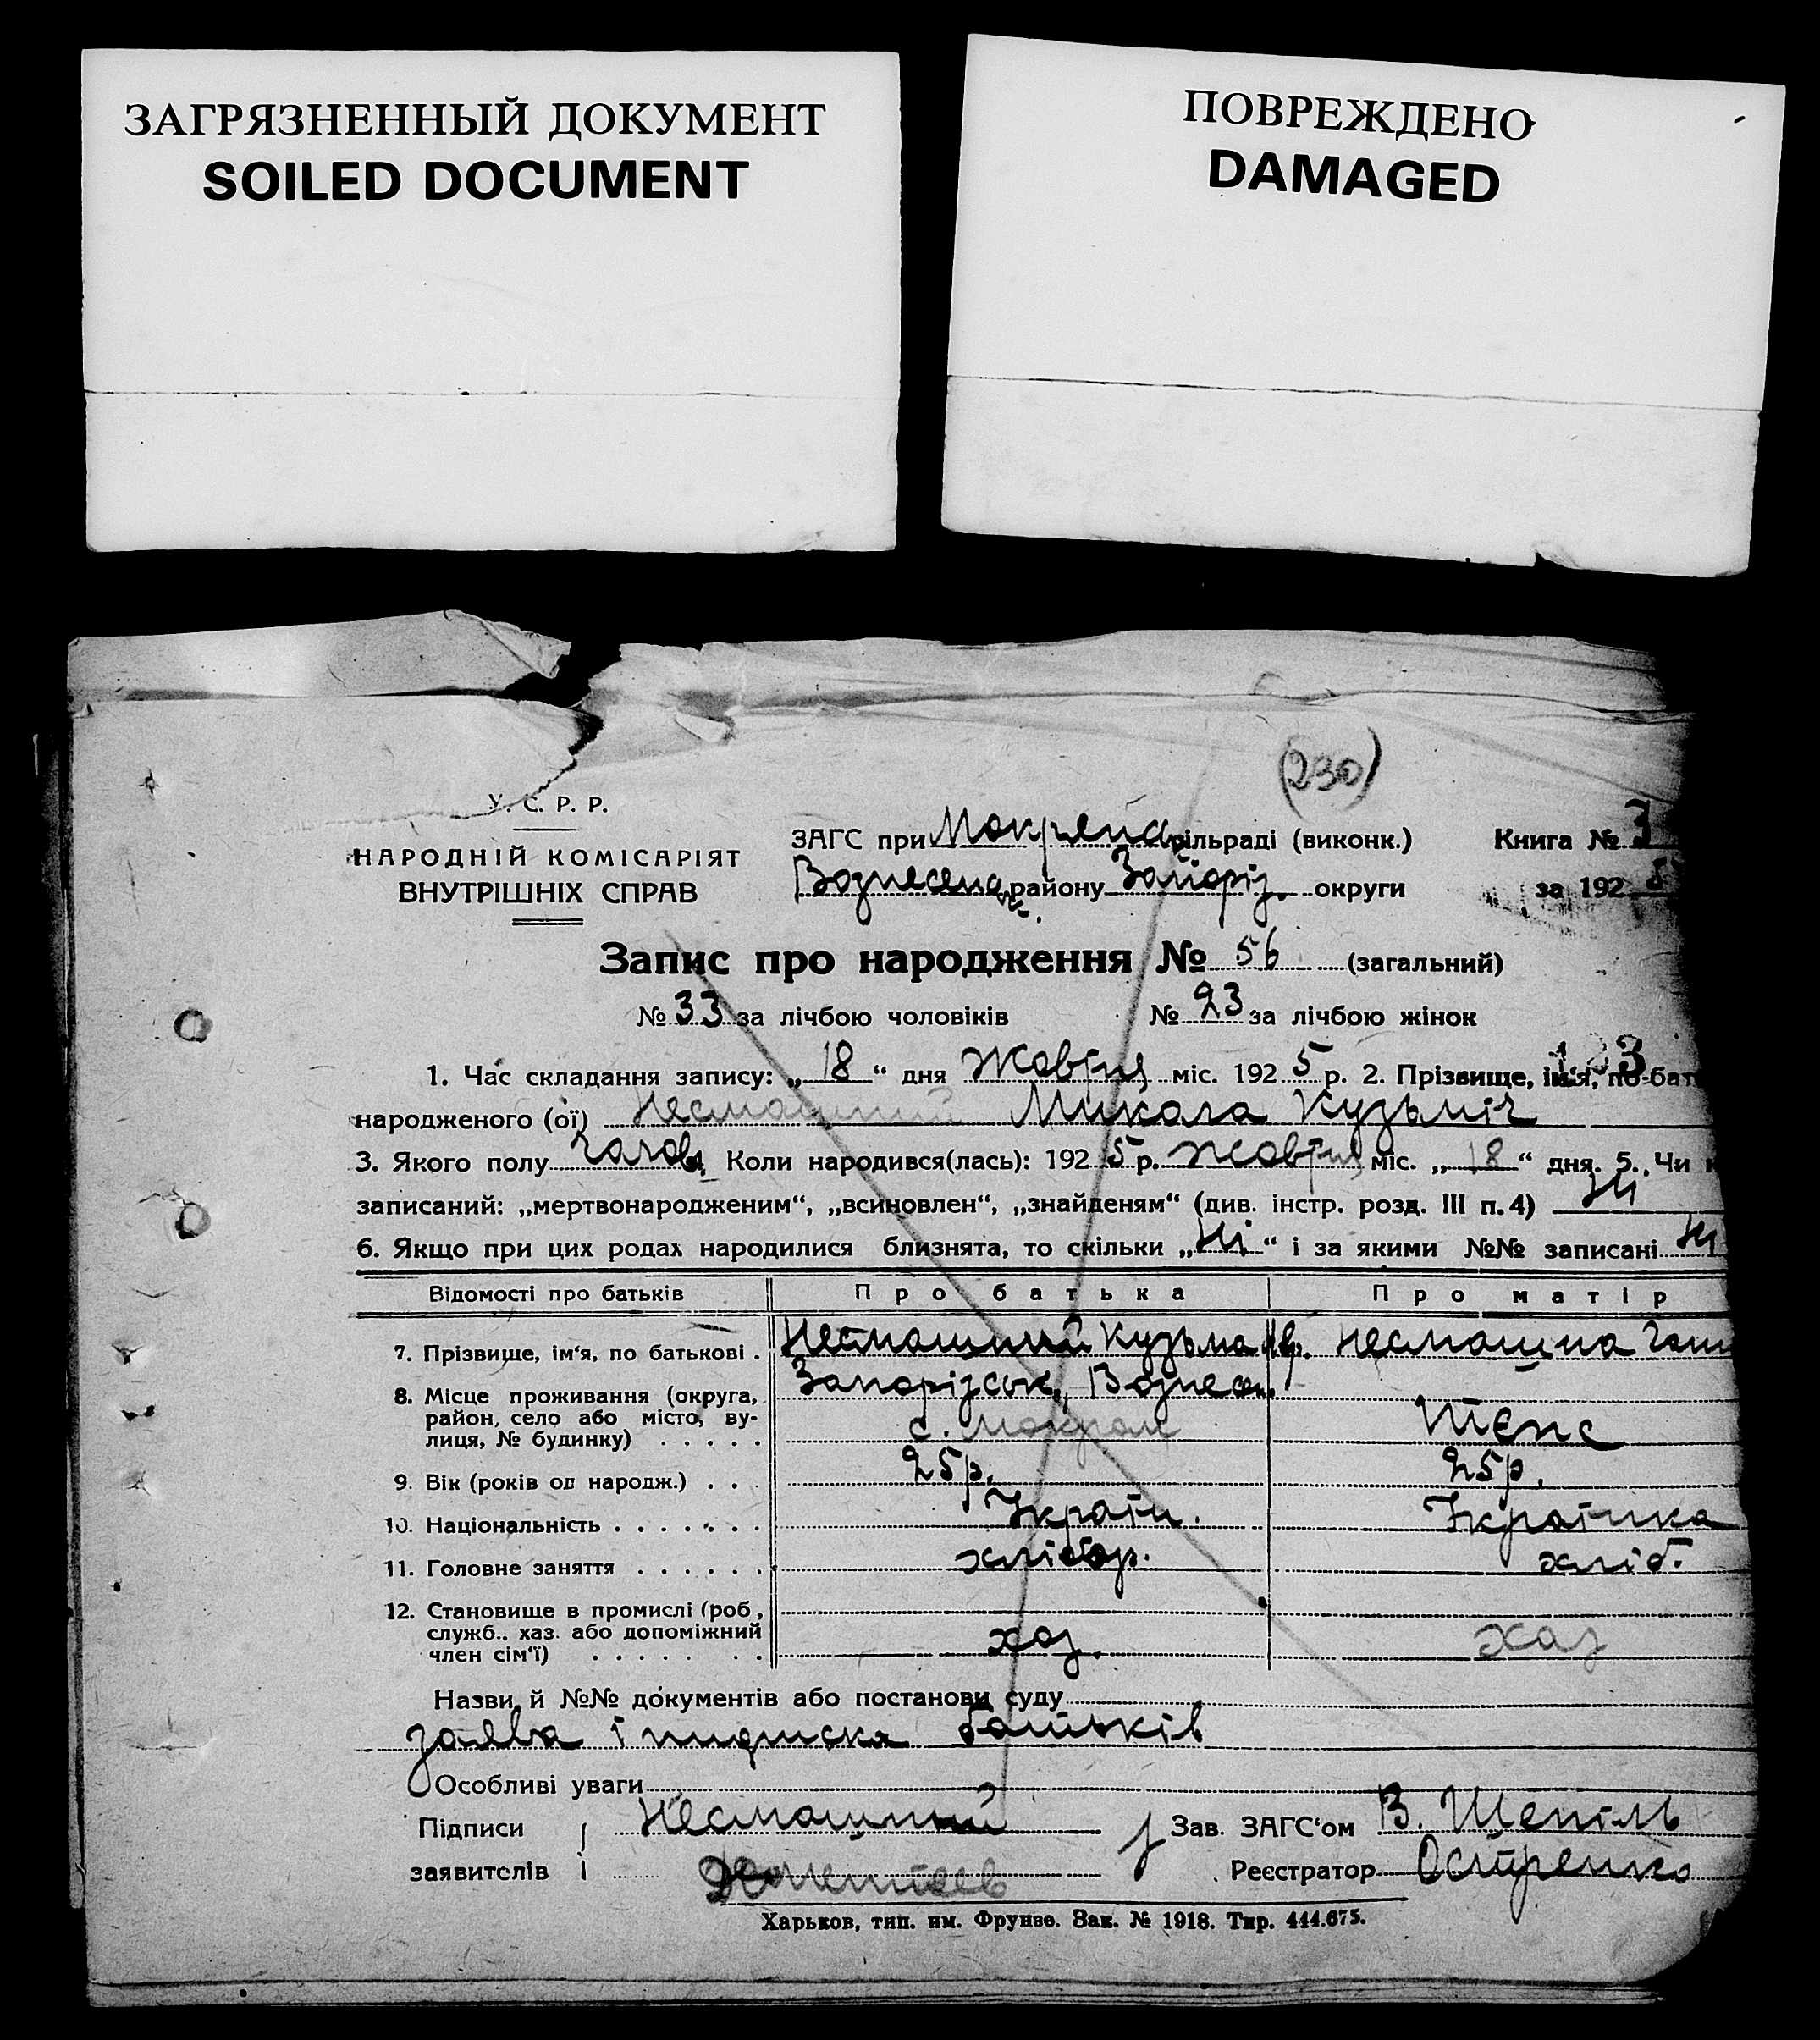 ЗАГРЯЗНЕННЫЙ ДОКУМЕНТ
SOILED DOCUMENT
ПОВРЕЖДЕНО
DAMAGED
(230)
У. С. Р. Р.
НАРОДНІЙ КОМІСАРІЯТ
ВНУТРІШНІХ СПРАВ
ЗАГС при Мокрянс. сільраді (виконк.) Книга № 3
Вознесенс. району Запоріз. округи за 1925
Запис про народження № 56 (загальний)
№ 33 за лічбою чоловіків № 23 за лічбою жінок
1. Час складання запису: „18“ дня Жовтня міс. 1925 р. 2. Прізвище, ім'я, по-бат
народженого (ої) Несмашний Микола Кузьміч
3. Якого полу чолов. Коли народився(лась): 1925 р. Жовтня міс. „18“ дня. 5. Чи
записаний: „мертвонародженим“, „всиновлен“, „знайденям“ (див. інстр. розд. III п. 4) ні
6. Якщо при цих родах народилися близнята, то скільки „Ні“ і за якими №№ записані ні
Відомості про батьків Про батька Про матір
7. Прізвище, ім'я, по батькові . Несмашний Кузьма Несмашна
8. Місце проживання (округа, район, село або місто, ву-
лиця, № будинку) . . . . . Запорізськ., Вознесен.
с. Мокром Теже
9. Вік (років од народж.) . . . 25 р. 25 р.
10. Національність . . . . . . . Україн. Українка
11. Головне заняття . . . . . . хлібор. хліб.
12. Становище в промислі (роб.,
служб., хаз. або допоміжний
член сім'ї) . . . . . . . хаз. хаз
Назви й №№ документів або постанови суду
заява і пидписка батьків
Особливі уваги
Підписи Несмашний Зав. ЗАГС'ом В. Шепіль
заявителів Реєстратор Остренко
Харьков, тип. им. Фрунзе. Зак. № 1918. Тир. 444.675.